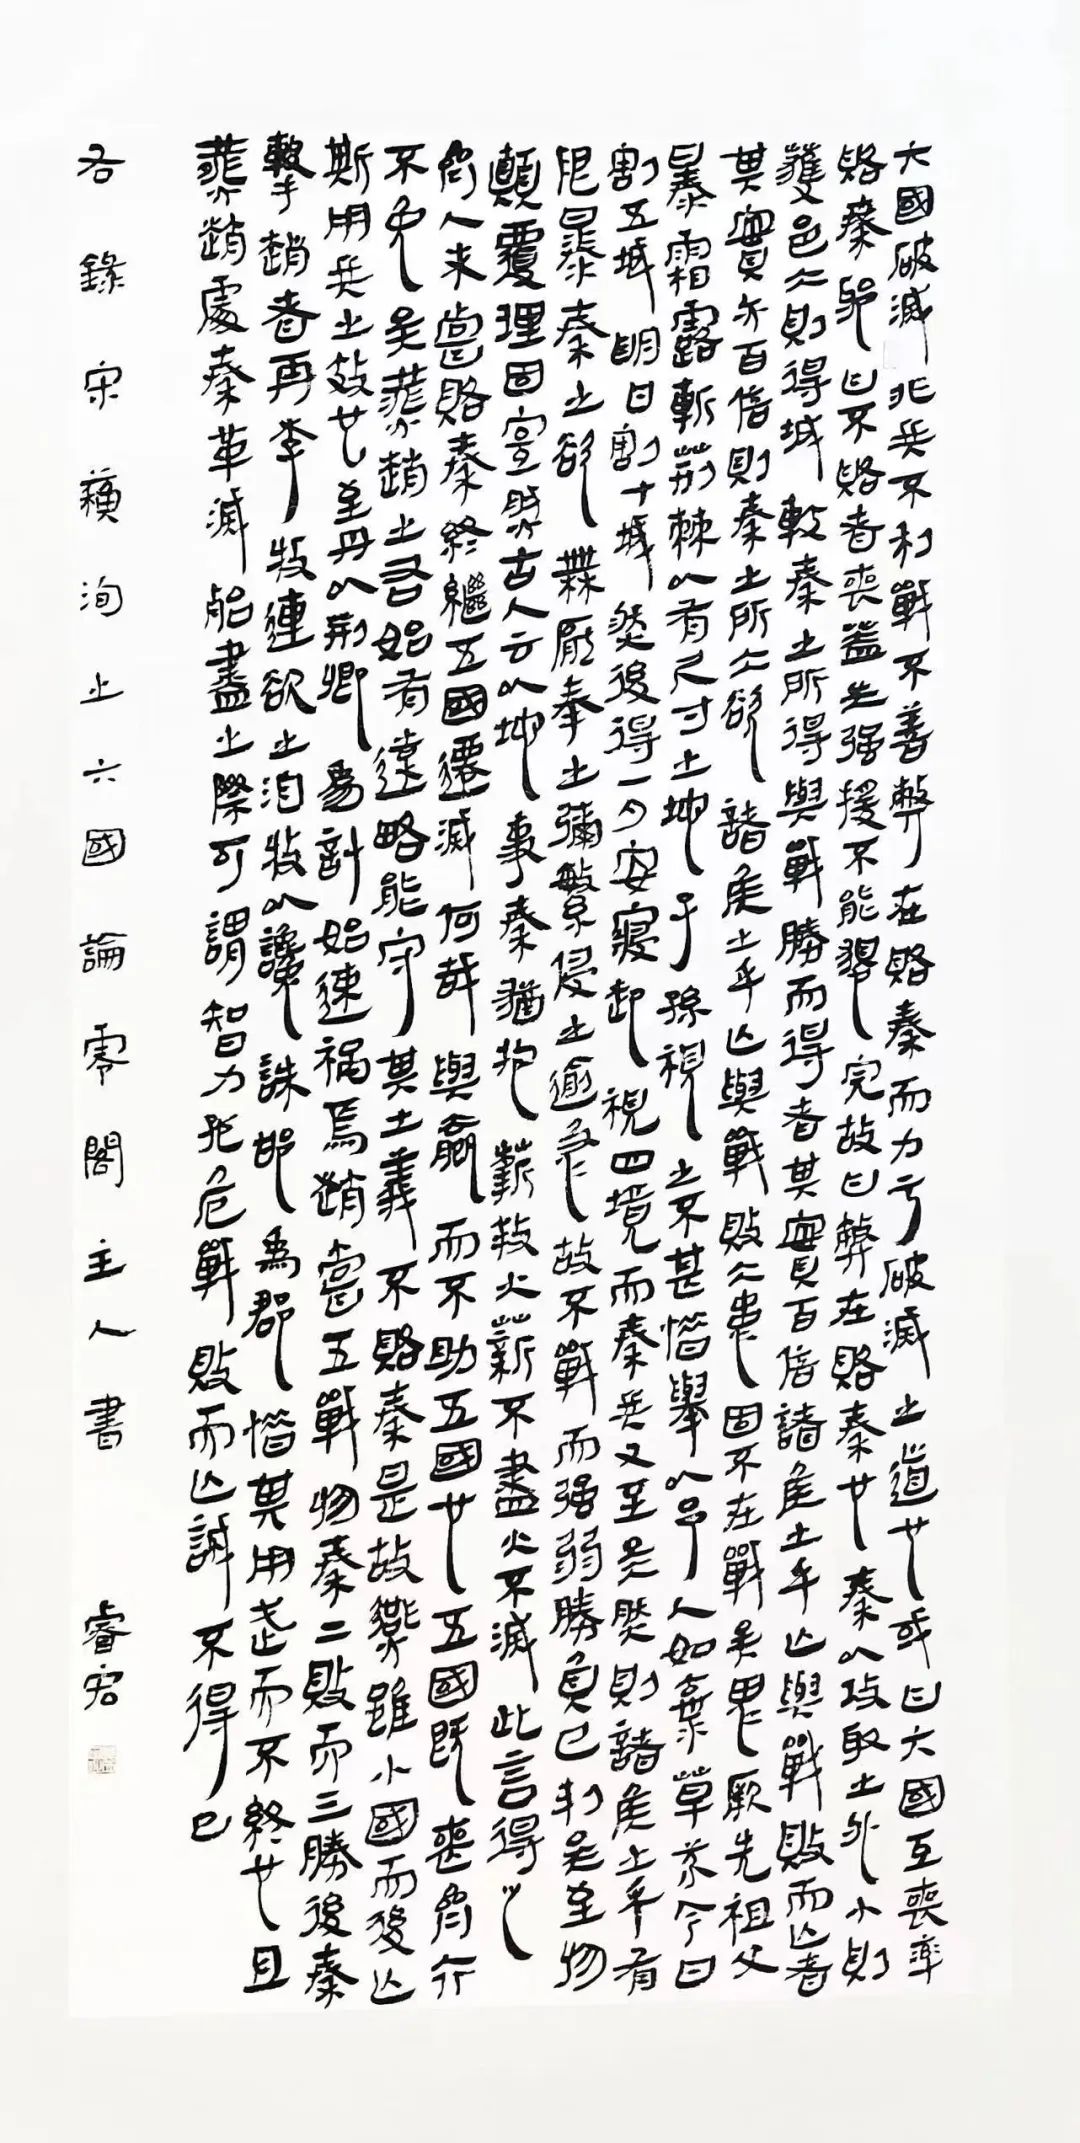 六國破滅非兵不利戰不善弊在賂秦而力亏破滅之道也或曰六國互喪率
賂秦耶曰不賂者喪盖失强援不能獨完故曰弊在賂秦也秦以攻取之外小則
獲邑大則得城較秦之所得與戰勝而得者其實百倍諸侯之所亡與戰敗而亡者
其實亦百倍則秦之所大欲諸侯之所亡與戰敗大患固不在戰矣思厥先祖父
暴霜露斬荊棘以有尺寸之地子孫視之不甚惜舉以予人如棄草芥今日
割五城明日割十城然後得一夕安寢起視四境而秦兵又至矣然則諸侯之有
限暴秦之欲無厭奉之彌繁侵之逾急故不戰而强弱勝負已判矣至於
顛覆理固宜然古人云以地事秦猶抱薪救火薪不盡火不滅此言得之
齊人未嘗賂秦終繼五國遷滅何哉與嬴而不助五國也五國既喪齊亦
不免矣燕趙之君始有遠略能守其土義不賂秦是故燕雖小國而後亡
斯用兵之效也至丹以荊卿為計始速禍焉趙嘗五戰於秦二敗而三勝後秦
擊趙者再李牧連却之洎牧以讒誅邯為郡惜其用武而不終也且
燕趙處秦革滅殆盡之際可謂智力孤危戰敗而亡誠不得已
右錄宋蘓洵之六國論零閣主人書 睿宏